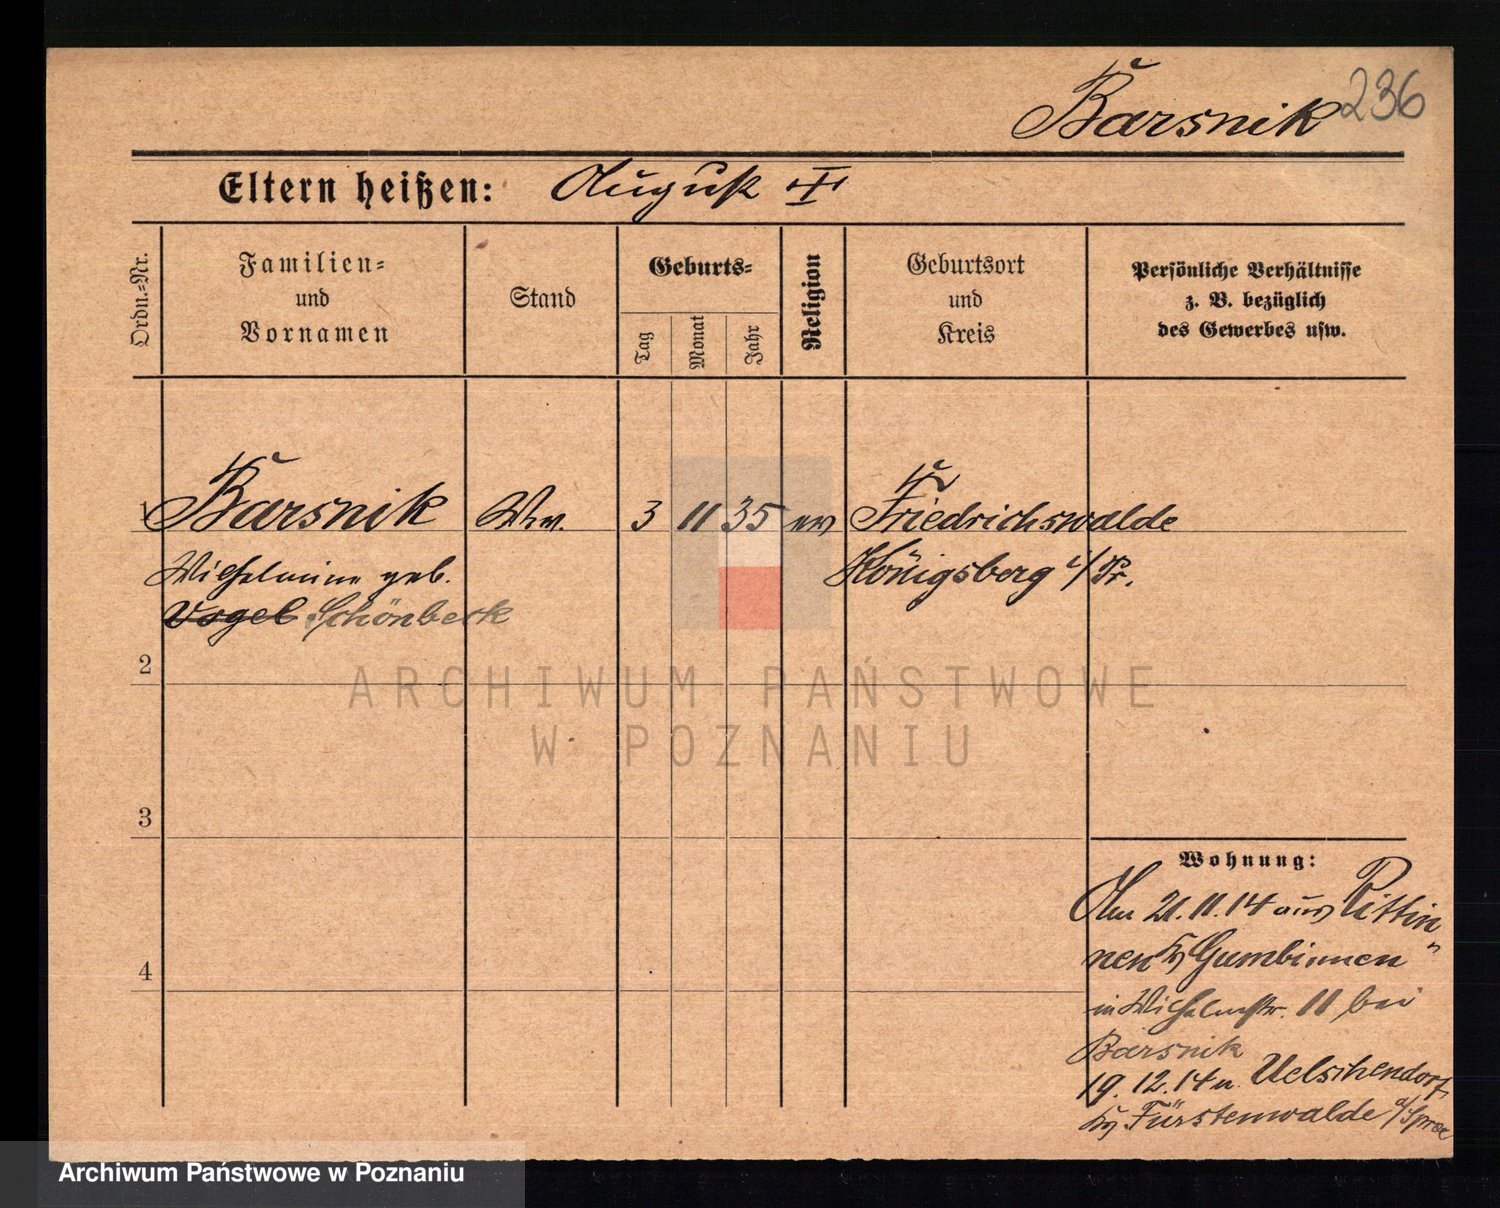 Barsnik 236
Eltern heißen: August I
Ordn.-Nr.
Familien-
und
Vornamen
Stand
Geburts-
Tag
Monat
Jahr
Religion
Geburtsort
und
Kreis
Persönliche Verhältnisse
z. B. bezüglich
des Gewerbes usw.
1 Barsnik Ww. 3 11 35 ev Friedrichswalde
Wilhelmine geb. Königsberg i/Pr.
Vogel Schönbeck
2
ARCHIWUM PAŃSTWOWE
W POZNANIU
3
Wohnung:
Am 21.11.14 aus Pittin
nen Kr Gumbinnen
4
in Wilhelmstr. 11 bei
Barsnik
19.12.14 n. Uelschendorf
Kr Fürstenwalde a/Spree
Archiwum Państwowe w Poznaniu